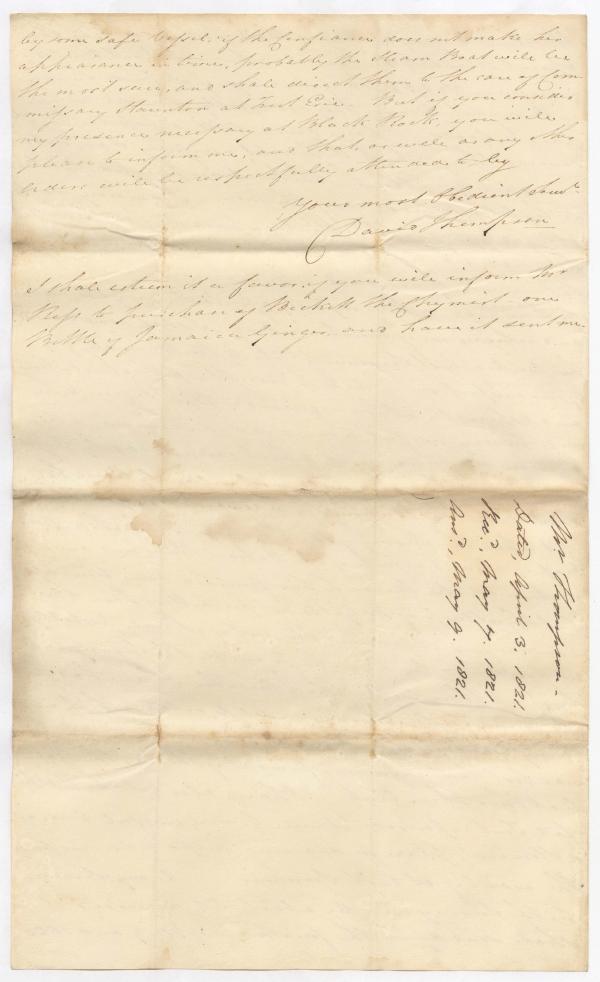 by some safe Vessel; if the Confiance does not make her
appearance in time, probably the Steam Boat will be
the most sure, and shall direct them to the care of Com
missary Staunton at Fort Erie. But if you consider
my presence necessary at Black Rock, you will
please to inform me, and that as well as any other
orders will be respectfully attended to by
Your most Obedient Servt
David Thompson
I shall esteem it a favor, if you will inform Mr
Ross to purchase of Bickett the Chymist one
Bottle of Jamaica Ginger and have it sent me.
Mr Thompson.
Dated, April 3. 1821.
Recd, May 7. 1821.
Ansd, May 9. 1821.